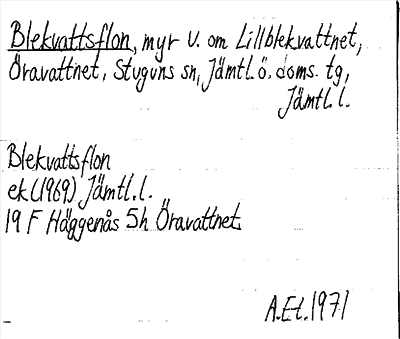 Blekvattsflon, myr v. om Lillblekvattnet,
Öravattnet, Stuguns sn, Jämtl. ö. doms. tg,
Jämtl. l.
Blekvattsflon
ek (1969) Jämtl. l.
19 F Häggenås 5h Öravattnet
A.Et. 1971